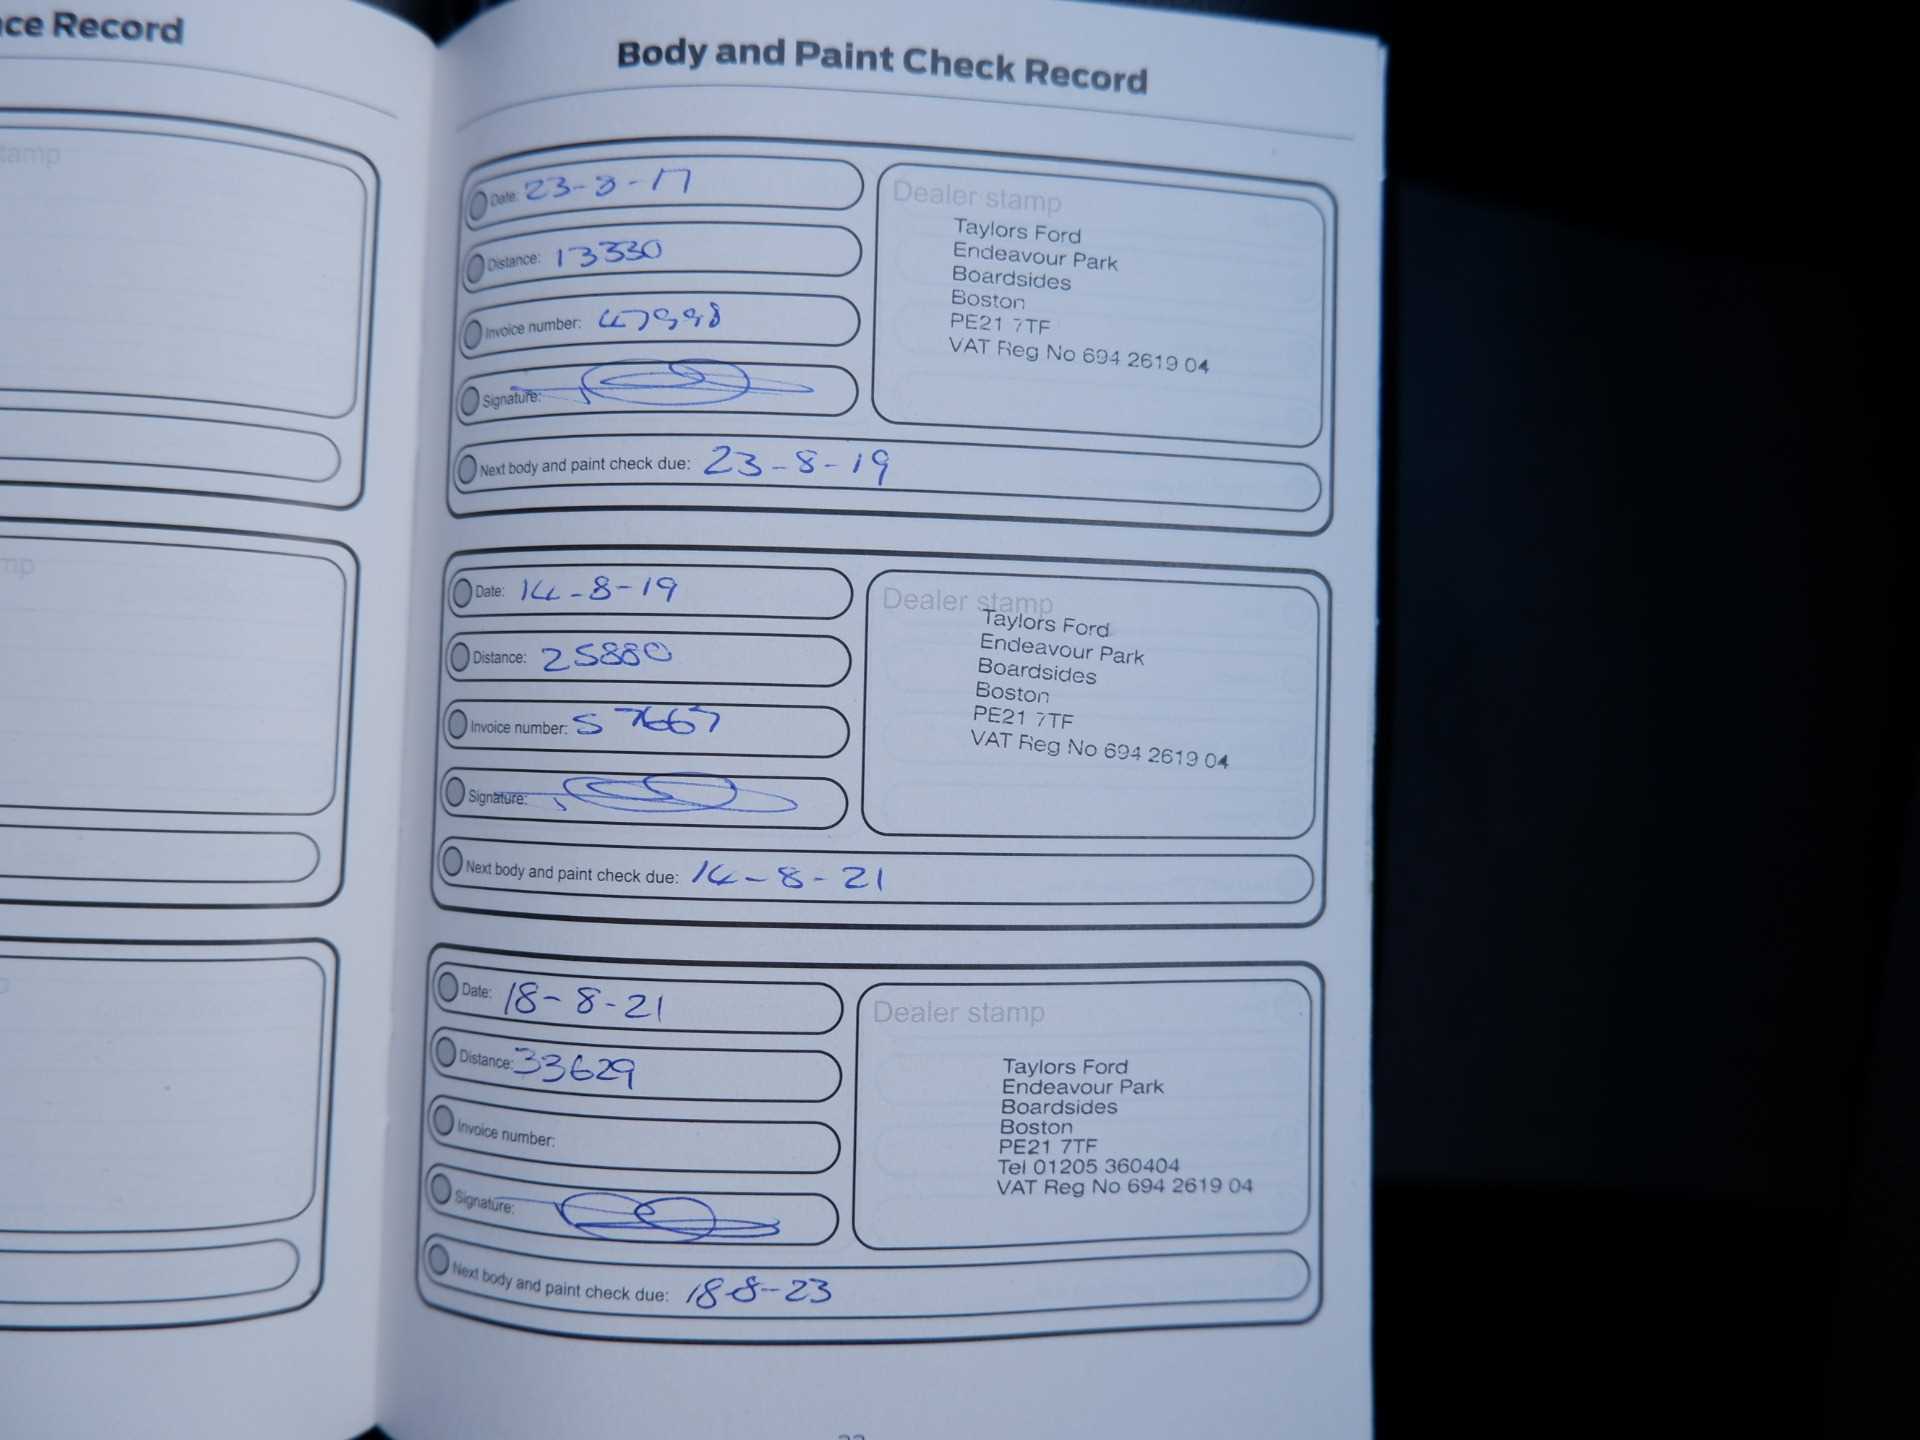 ce Record
tamp
mp
Body and Paint Check Record
Date: 23-8-17
Distance: 13330
Invoice number: 47998
Signature:
Next body and paint check due: 23-8-19
Dealer stamp
Taylors Ford
Endeavour Park
Boardsides
Boston
PE21 7TF
VAT Reg No 694 2619 04
Date: 14-8-19
Distance: 25880
Invoice number: 57667
Signature:
Next body and paint check due: 14-8-21
Dealer stamp
Taylors Ford
Endeavour Park
Boardsides
Boston
PE21 7TF
VAT Reg No 694 2619 04
Date: 18-8-21
Distance: 33629
Invoice number:
Signature:
Next body and paint check due: 18-8-23
Dealer stamp
Taylors Ford
Endeavour Park
Boardsides
Boston
PE21 7TF
Tel 01205 360404
VAT Reg No 694 2619 04